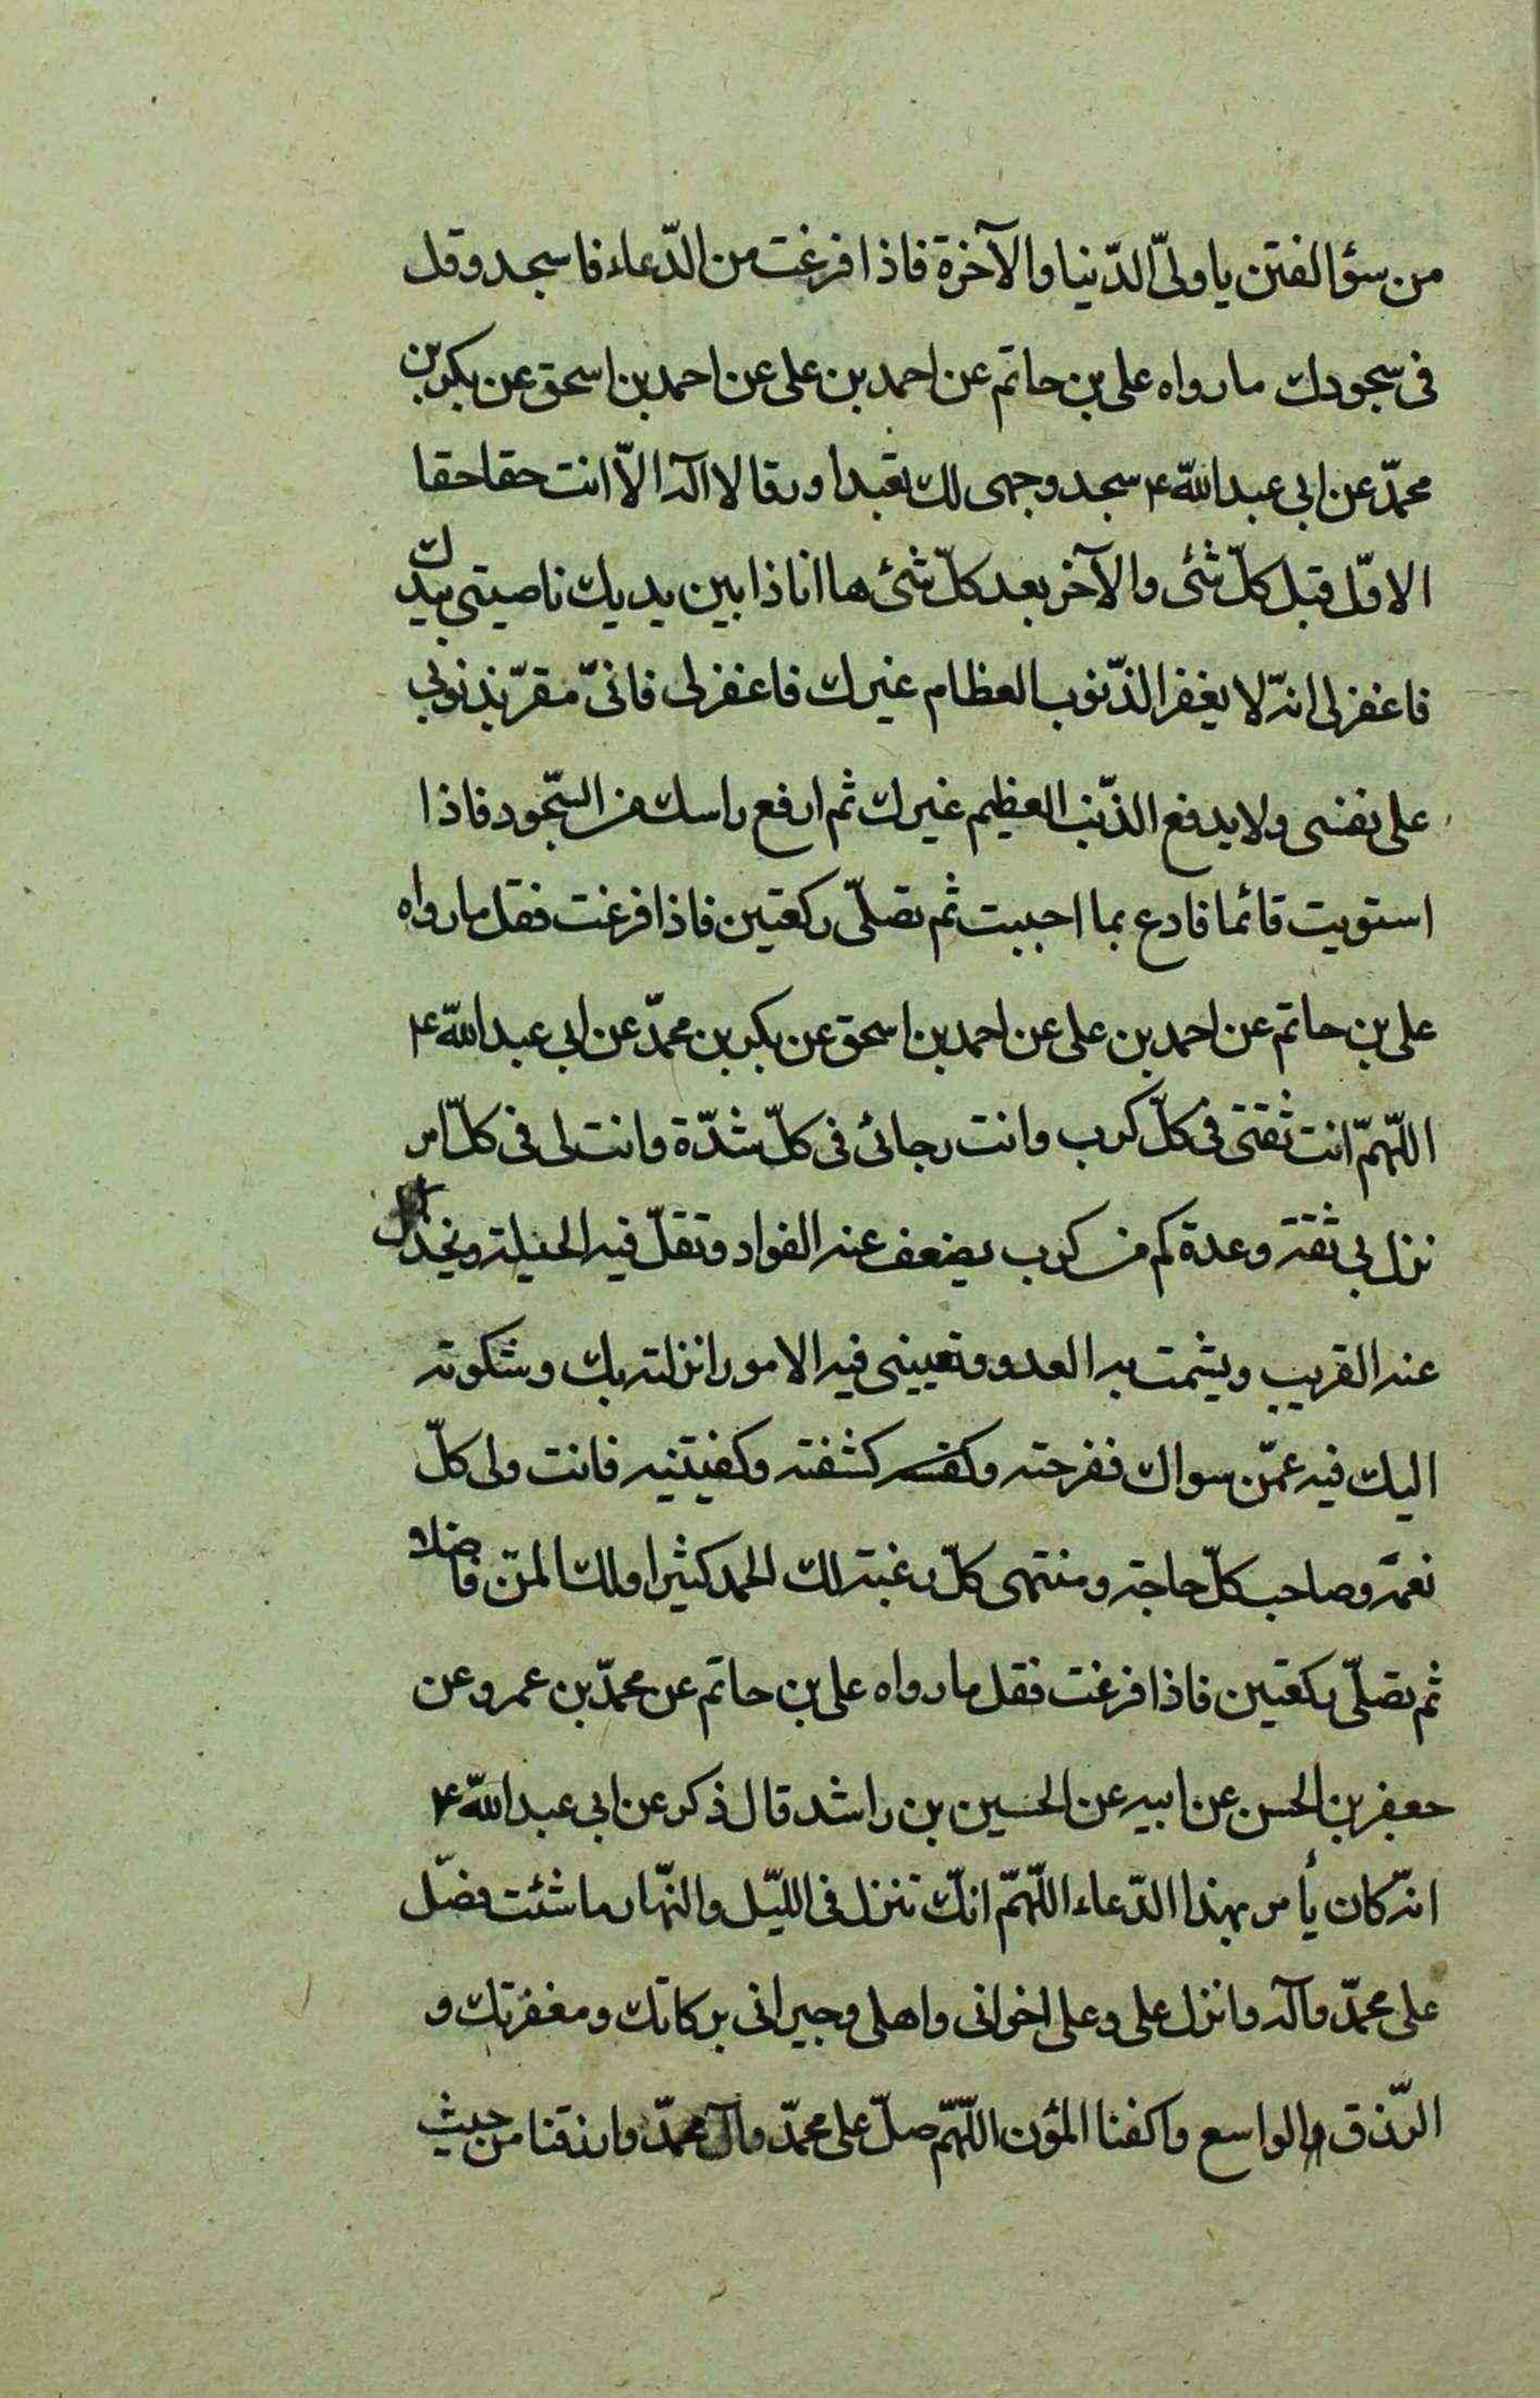 من سؤ الفتن يا ولىّ الدّنيا والآخرة فاذا فرغت من الدّعاء فاسجد وقل
فى سجودك ما رواه على بن حاتم عن احمد بن على عن احمد بن اسحق عن بكر بن
محمّد عن ابى عبد اللّه ع سجد وجهى لك تعبدا ورقا لا اله الّا انت حقا حقا
الاوّل قبل كلّ شئ والآخر بعد كلّ شئ ها انا ذا بين يديك ناصيتى بيدك
فاغفر لى انّه لا يغفر الذّنوب العظام غيرك فاغفر لى فانىّ مقرّ بذنوبى
على نفسى ولا يدفع الذّنب العظيم غيرك ثم ارفع راسك من السّجود فاذا
استويت قائما فادع بما احببت ثم تصلّى ركعتين فاذا فرغت فقل ما رواه
على بن حاتم عن احمد بن على عن احمد بن اسحق عن بكر بن محمّد عن ابى عبد اللّه ع
اللّهمّ انت ثقتى فى كلّ كرب وانت رجائى فى كلّ شدّة وانت لى فى كلّ امر
نزل بى ثقة وعدة كم من كرب يضعف عنه الفواد وتقلّ فيه الحيلة ويخذل
عنه القريب ويشمت به العدو وتعيينى فيه الامور انزلته بك وشكوته
اليك فيه عمّن سواك ففرجته وكشفته وكفيتنيه فانت ولى كلّ
نعمة وصاحب كلّ حاجة ومنتهى كلّ رغبة لك الحمد كثيرا ولك المنّ فاضلا
ثم تصلّى ركعتين فاذا فرغت فقل ما رواه على بن حاتم عن محمّد بن عمرو عن
جعفر بن الحسن عن ابيه عن الحسين بن راشد قال ذكر عن ابى عبد اللّه ع
انّه كان يأمر بهذا الدّعاء اللّهمّ انّك تنزل فى اللّيل والنّهار ما شئت فصّل
على محمّد وآله وانزل على وعلى اخوانى واهلى وجيرانى بركاتك ومغفرتك و
الرّزق الواسع واكفنا المؤن اللّهمّ صلّ على محمّد وآل محمّد وارزقنا من حيث